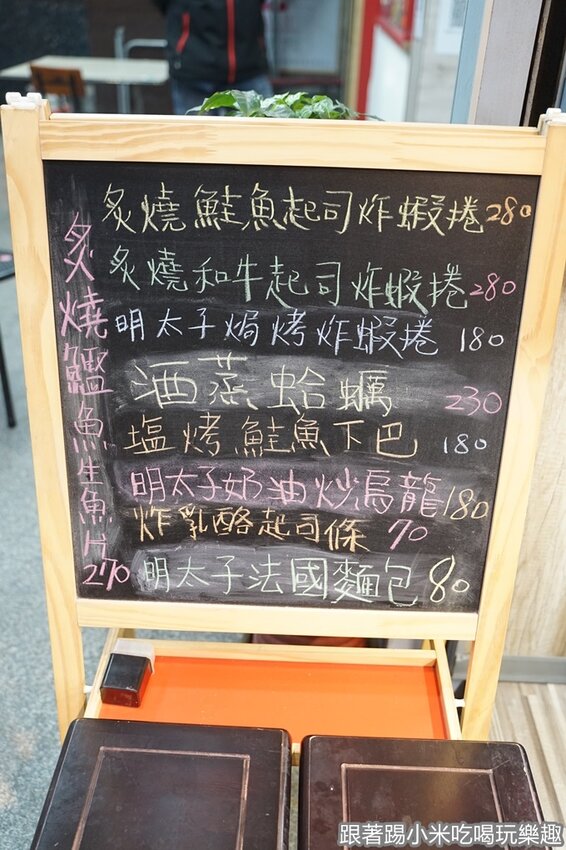 炙燒鮭魚起司炸蝦捲280
炙燒和牛起司炸蝦捲280
明太子焗烤炸蝦捲 180
酒蒸蛤蠣 230
塩烤鮭魚下巴 180
明太子奶油炒烏龍180
炸乳酪起司條 70
明太子法國麵包 80
炙燒鰹魚生魚片 270
跟著踢小米吃喝玩樂趣